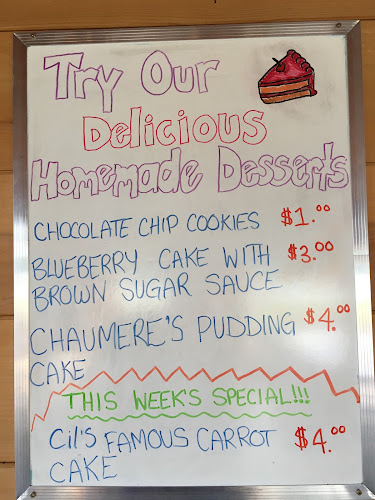 Try Our
Delicious
Homemade Desserts
CHOCOLATE CHIP COOKIES $1.00
BLUEBERRY CAKE WITH $3.00
BROWN SUGAR SAUCE
CHAUMERE'S PUDDING $4.00
CAKE
THIS WEEK'S SPECIAL!!!
Cil's FAMOUS CARROT $4.00
CAKE